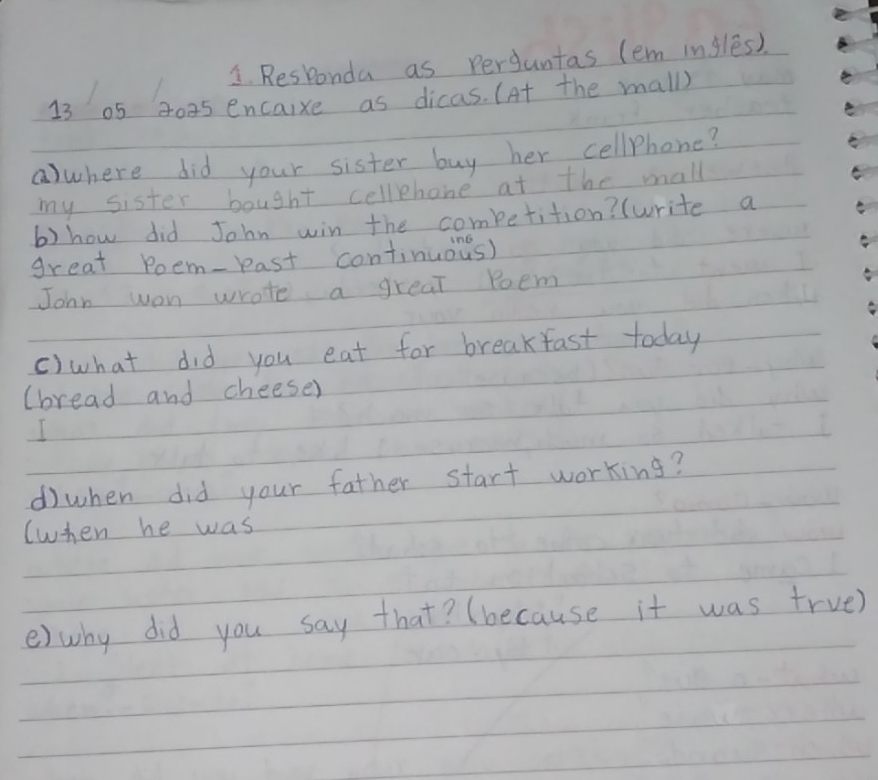 1. Responda as perguntas (em inglês).
13 / 05 / 2025 encaixe as dicas. (At the mall)
a) where did your sister buy her cellphone?
my sister bought cellphone at the mall
b) how did John win the competition? (write a
great poem - past continuous)
ing
John won wrote a great Poem
c) what did you eat for breakfast today
(bread and cheese)
I
d) when did your father start working?
(when he was
e) why did you say that? (because it was true)